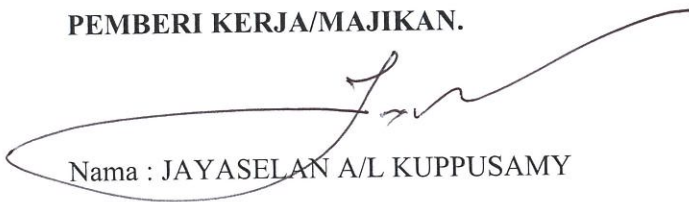 PEMBERI KERJA/MAJIKAN.
Nama : JAYASELAN A/L KUPPUSAMY